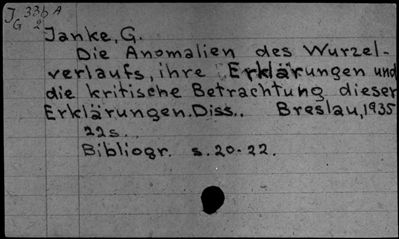 J 336 A
G 2
Janke, G.
Die Anomalien des Wurzel-
verlaufs, ihre Erklärungen und
die kritische Betrachtung dieser
Erklärungen. Diss.. Breslau, 1935
22s..
Bibliogr. s. 20-22.